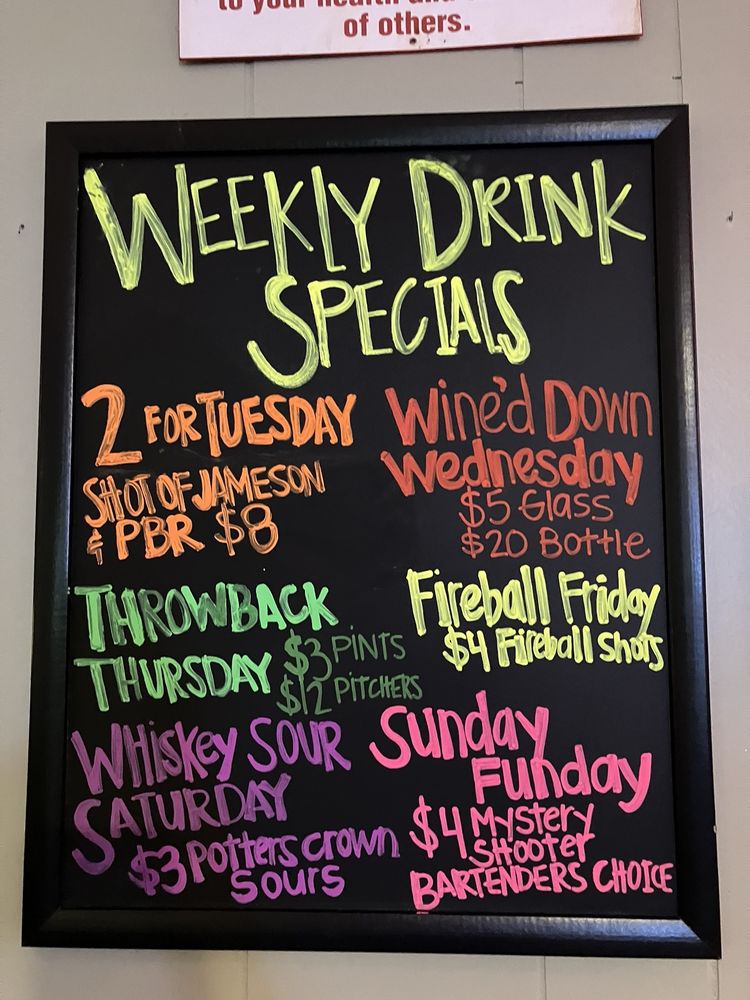 of others.
WEEKLY DRINK
SPECIALS
2 FOR TUESDAY
SHOT OF JAMESON
& PBR $8
Wine'd Down
Wednesday
$5 Glass
$20 Bottle
THROWBACK
THURSDAY $3 PINTS
$12 PITCHERS
Fireball Friday
$4 Fireball Shots
WHiskey SOUR
SATURDAY
$3 Potters crown
Sours
Sunday
Funday
$4 Mystery
Shooter
BARTENDERS CHOICE